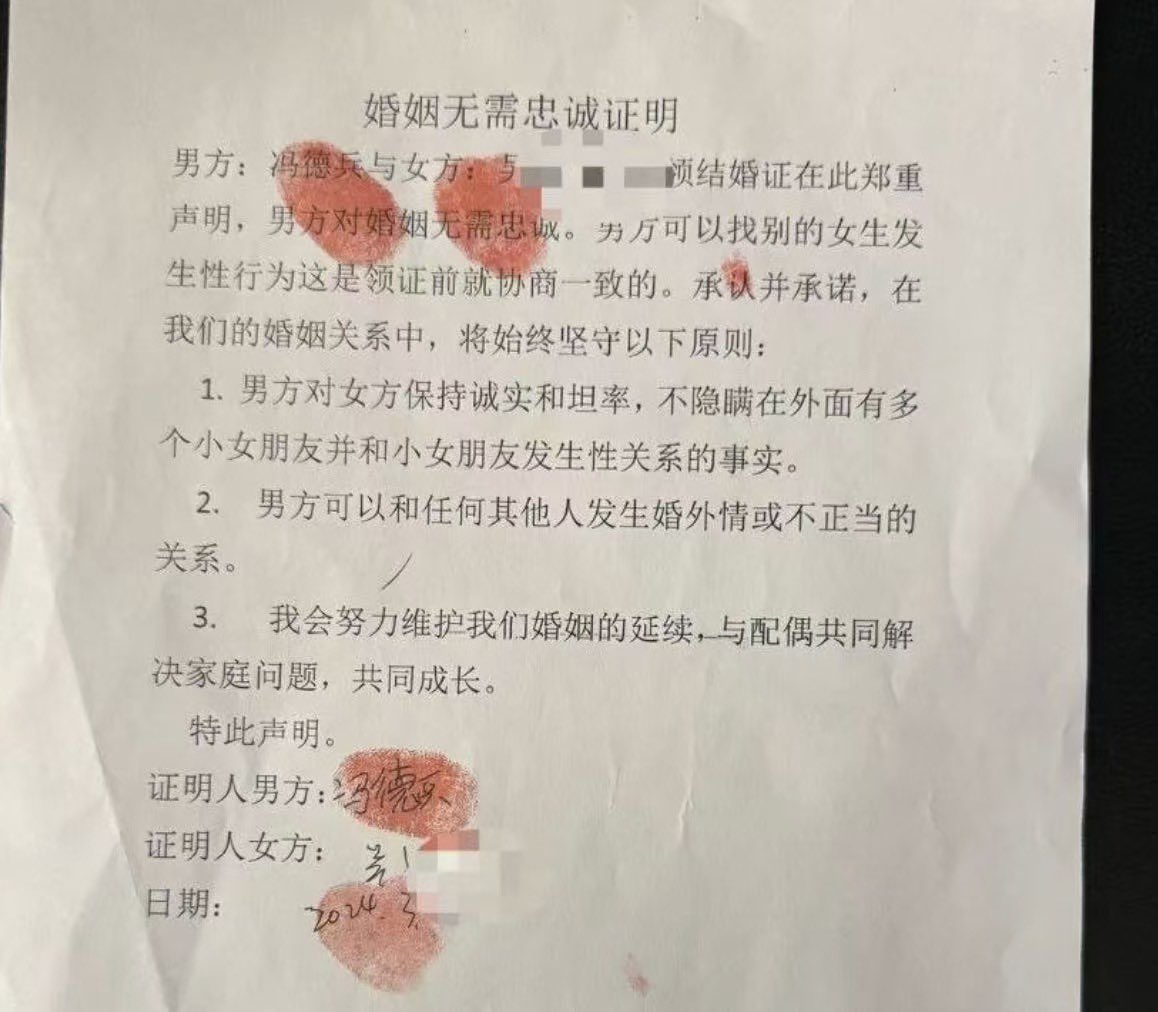 婚姻无需忠诚证明
男方：冯德兵与女方： 领结婚证在此郑重
声明，男方对婚姻无需忠诚。男方可以找别的女生发
生性行为这是领证前就协商一致的。承认并承诺，在
我们的婚姻关系中，将始终坚守以下原则：
1. 男方对女方保持诚实和坦率，不隐瞒在外面有多
个小女朋友并和小女朋友发生性关系的事实。
2. 男方可以和任何其他人发生婚外情或不正当的
关系。
3. 我会努力维护我们婚姻的延续，与配偶共同解
决家庭问题，共同成长。
特此声明。
证明人男方：冯德兵
证明人女方：
日期：2024.3.